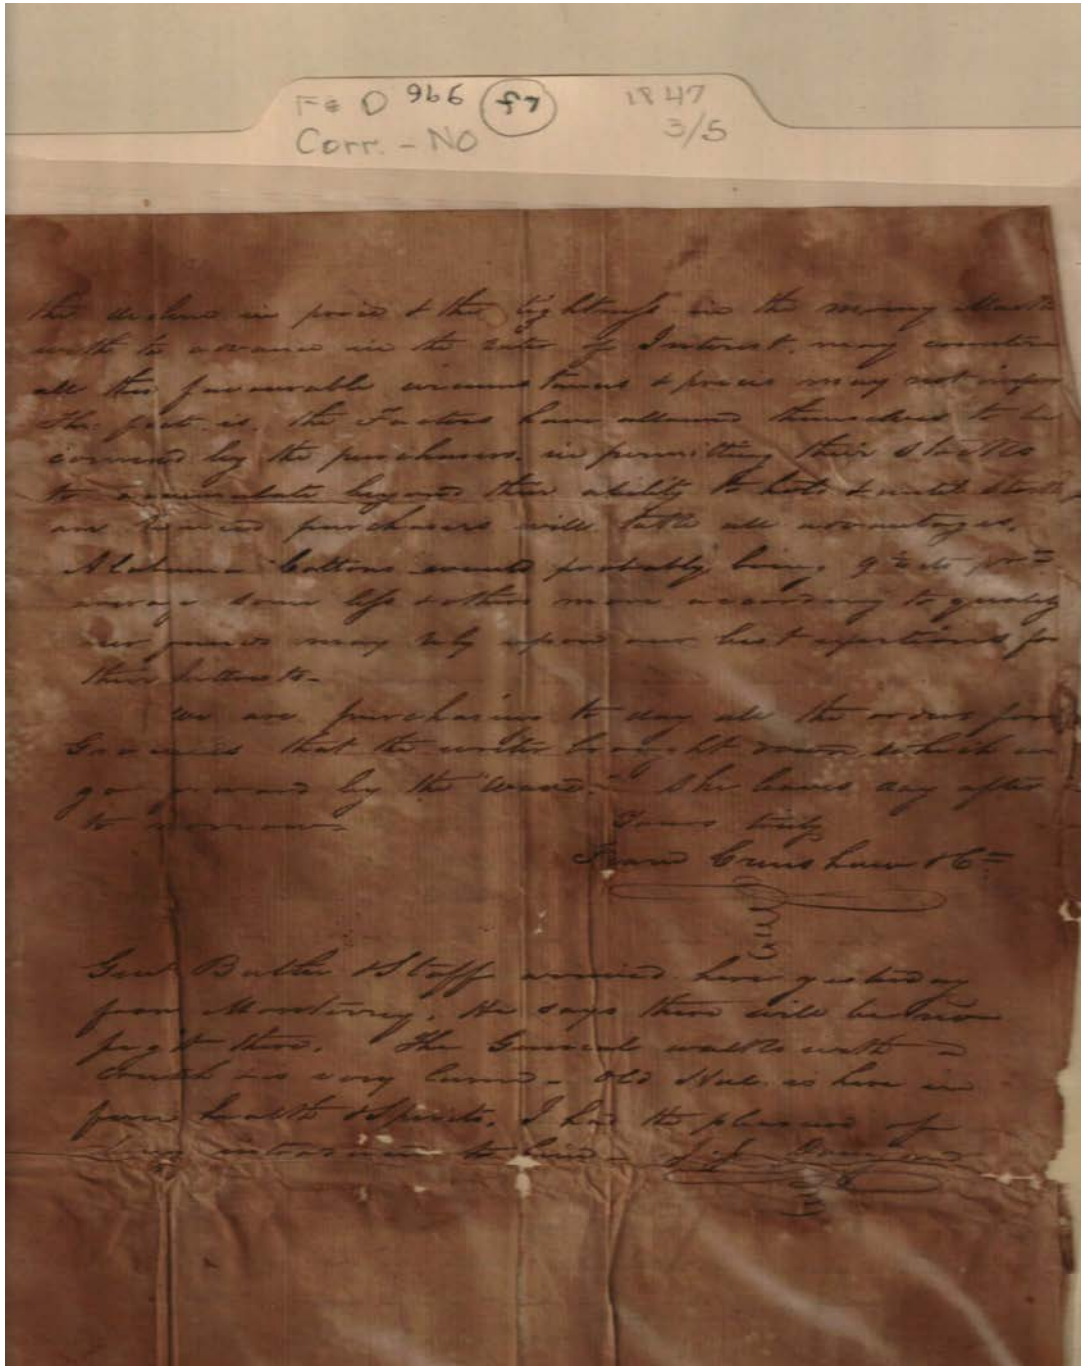 F & D 966 f7 1847
Corr. - NO 3/5
the decline in price & the tightness in the money Market
with to advance in the rates of Interest, may
all this favourable circumstances & prices may not
The fact is, the Factors have allowed themselves to be
by the purchasers, in permitting their Stocks
to accumulate beyond their ability to hold & until Stocks
are reduced purchasers will take all advantages.
Alabama Cottons would probably bring 9½
average some less & others more according to quality
our friends may rely upon our best exertions for
their interests.
We are purchasing to day all the orders for
Groceries that the writer brought down, which
go forward by the "  " She leaves day after
to morrow.
Yours truly
Crenshaw & Co
Genl Butler & Staff arrived here yesterday
from Monterrey, He says there will be no
fight there. The General walks with a
Crutch & is very lame. Old is here in
fine health & Spirits, I had the pleasure of
introduction to him